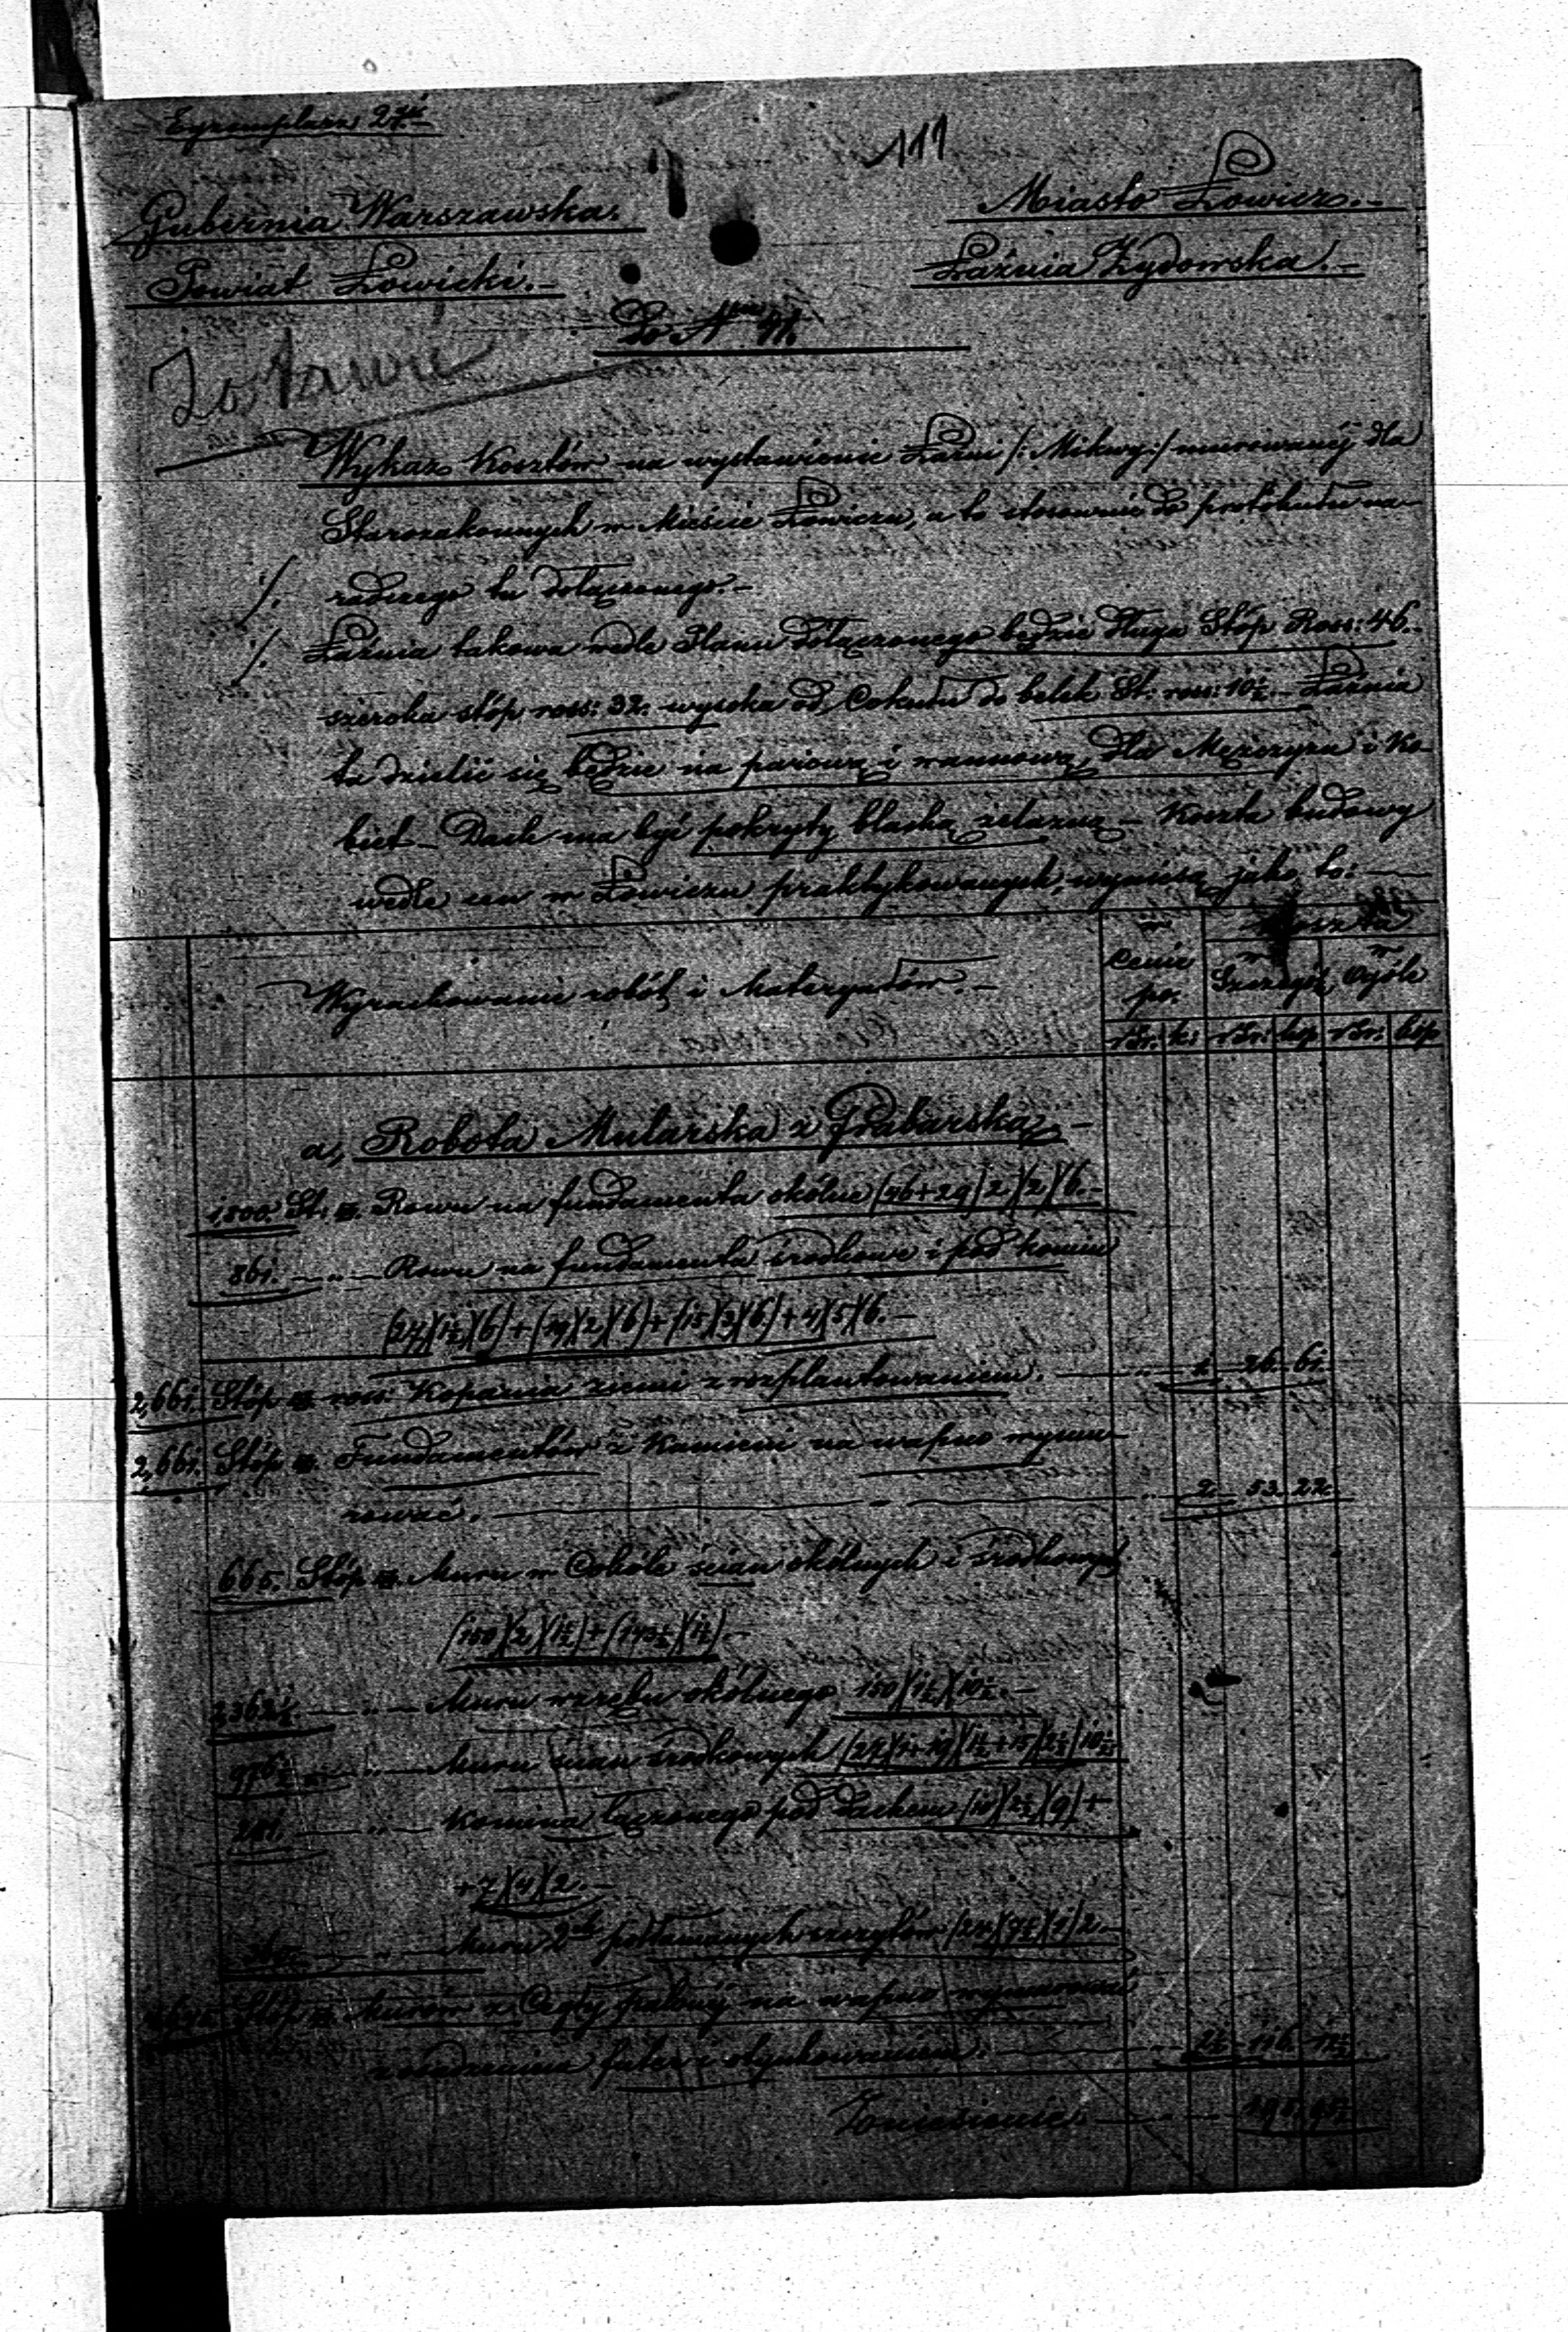 Egzemplarz 2gi
111
Gubernia Warszawska.
Miasto Łowicz.
Powiat Łowicki.
Łaźnia Żydowska.
Do Nru
Wykaz Kosztów na wystawienie Łaźni /: Mikwy :/ murowanéj dla
Starozakonnych w Mieście Łowiczu, a to stosownie do protokułu na-
radczego tu dołączonego.
Łaźnia takowa wedle Planu dołączonego będzie długa Stóp Ross: 46.
szeroka stóp ross: 32. wysoka od Cokułu do belek St: ross: 10½. Łaźnia
ta dzielić się będzie na parową i wannową, dla Mężczyzn i Ko-
biet. Dach ma być pokryty blachą żelazną. Koszta budowy
wedle cen w Łowiczu praktykowanych, wyniosą jako to:
w Cenie po. Koszta
w Szczegól, w Ogóle
Wyrachowanie robót i Materyałów.
rSr. k: rSr: kop rSr: kop
a, Robota Mularska z Grabarską.
1,800. St: Rowu na fundamenta okólne (46+29)2)(2)(6.
861. „ Rowu na fundamenta środkowe i pod komin
(27)(1½)(6)+(19)(2)(6)+(15)(3)(6)+4)(5)(6.
2,661. Stóp ross: Kopania ziemi z rozplantowaniem. 1. 26. 61.
2,661. Stóp Fundamentów z Kamieni na wapno wymu-
rować. 2. 53. 22.
665. Stóp Muru w Cokole ścian okólnych i środkowych
(150)(2)(1½)+(143½)(1½).
2362½. „ Muru w zrębu okólnego 150)(1½)(10½.
976½ „ Muru ścian środkowych
281. „ Komina łączonego pod dachem (10)(2½)(9)+
+7)(4)(2.
„ Muru 2ch połamanych szczytów
Stóp Murów z Cegły palonéj na wapno wymurować
z obadaniem futer i otynkowaniem. 2½. 116. 17½
Zniesienie